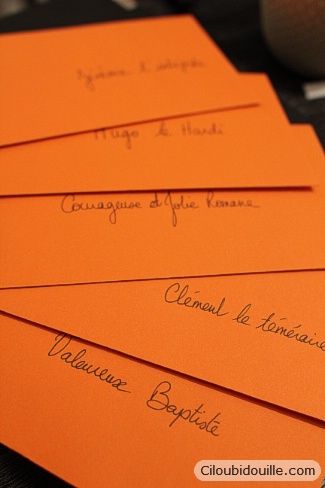 Hugo le Hardi
Courageuse et Jolie Romane
Clément le téméraire
Valeureux Baptiste
Ciloubidouille.com